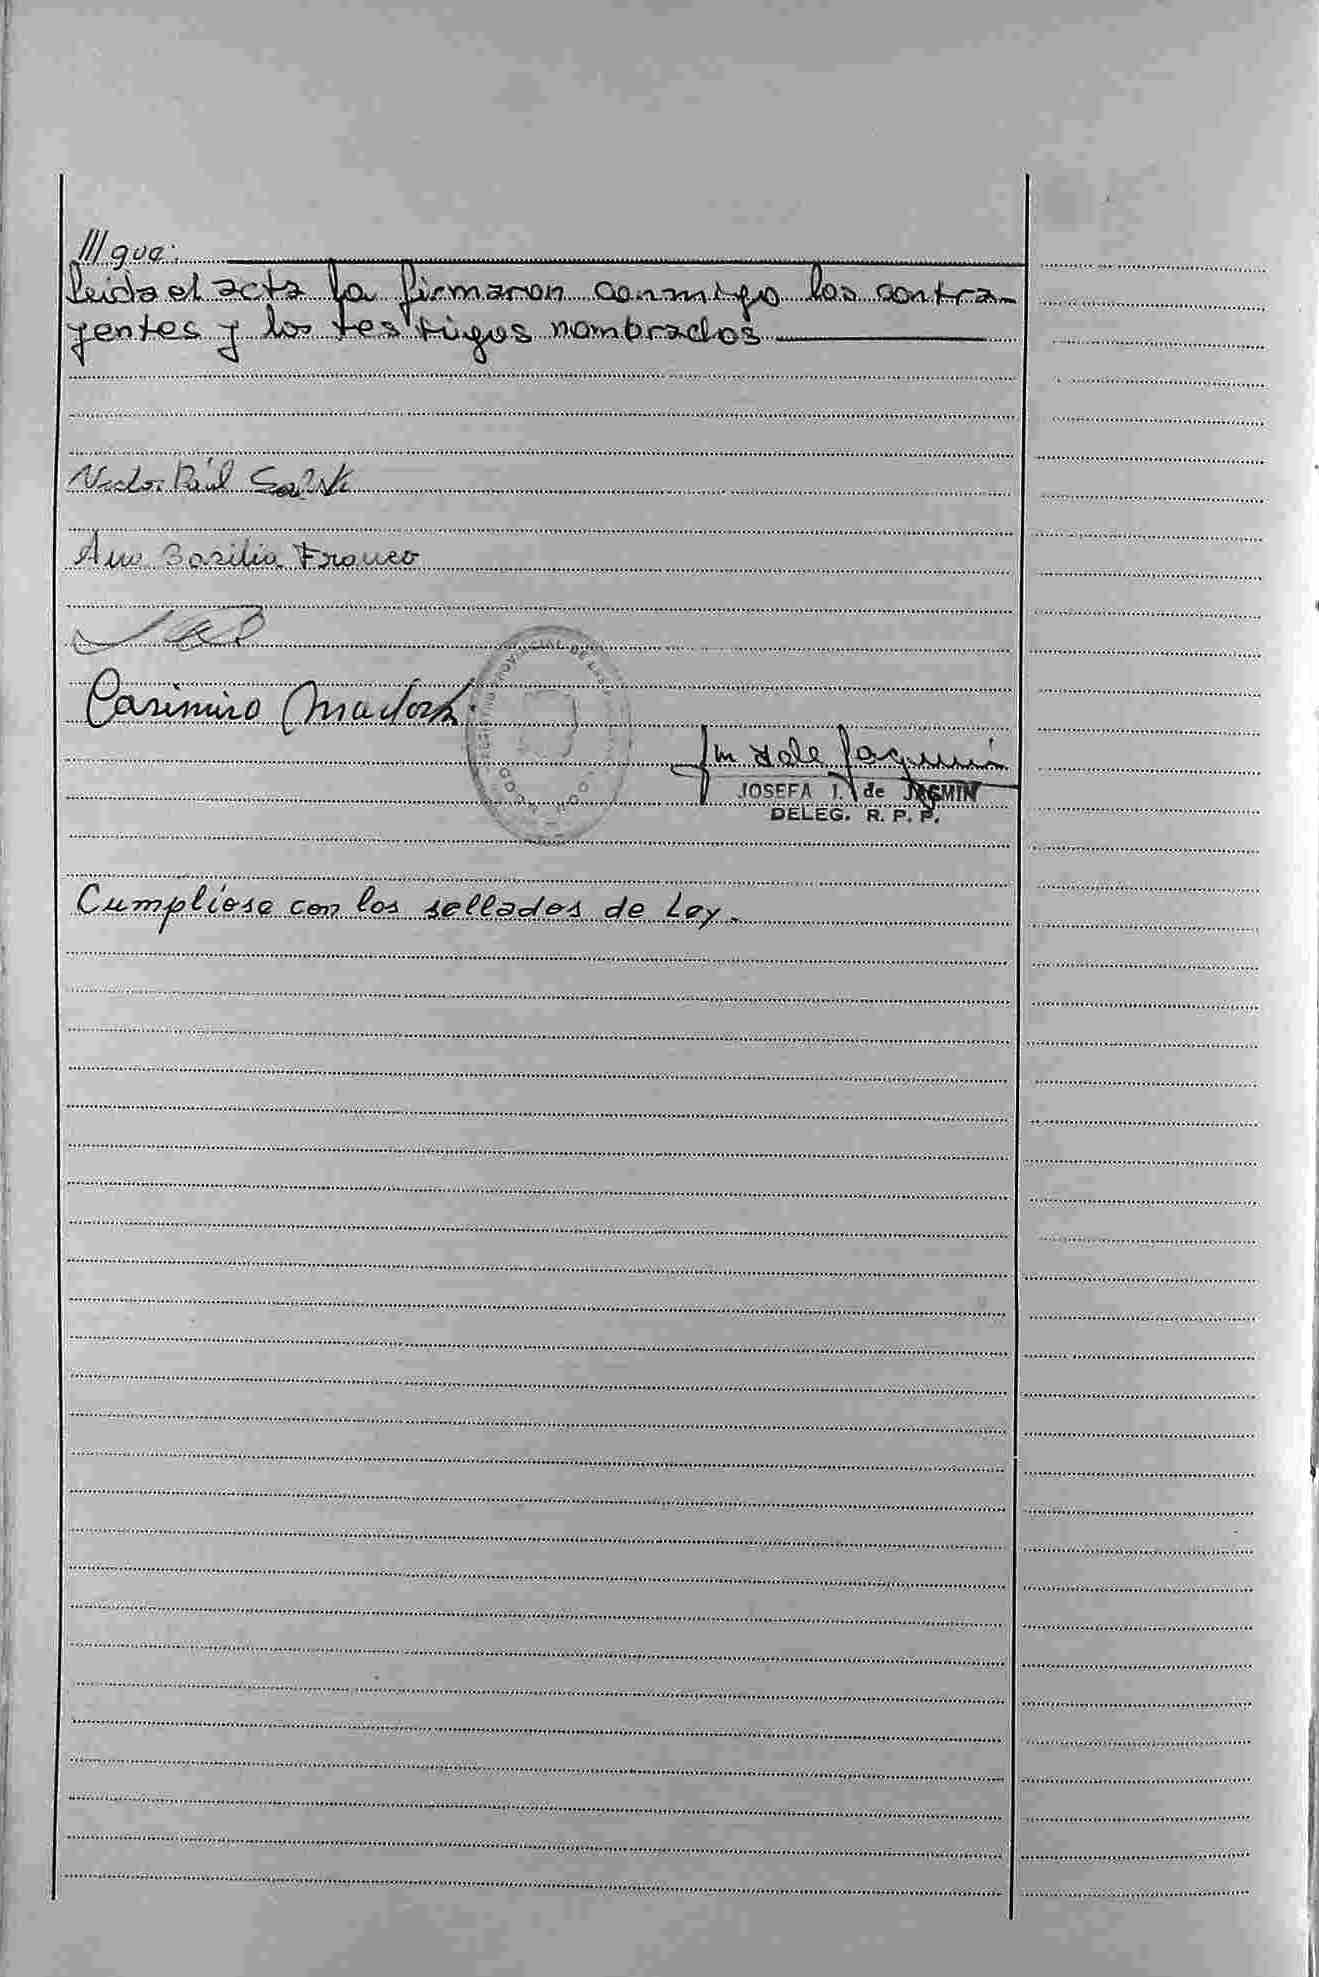 /// gua:
Leida el acta la firmaron conmigo los contra-
yentes y los testigos nombrados
Victor Raúl
Ana Basilia Franco
Casimiro
JOSEFA I. de JASMIN
DELEG. R. P. P.
Cumpliose con los sellados de Ley.